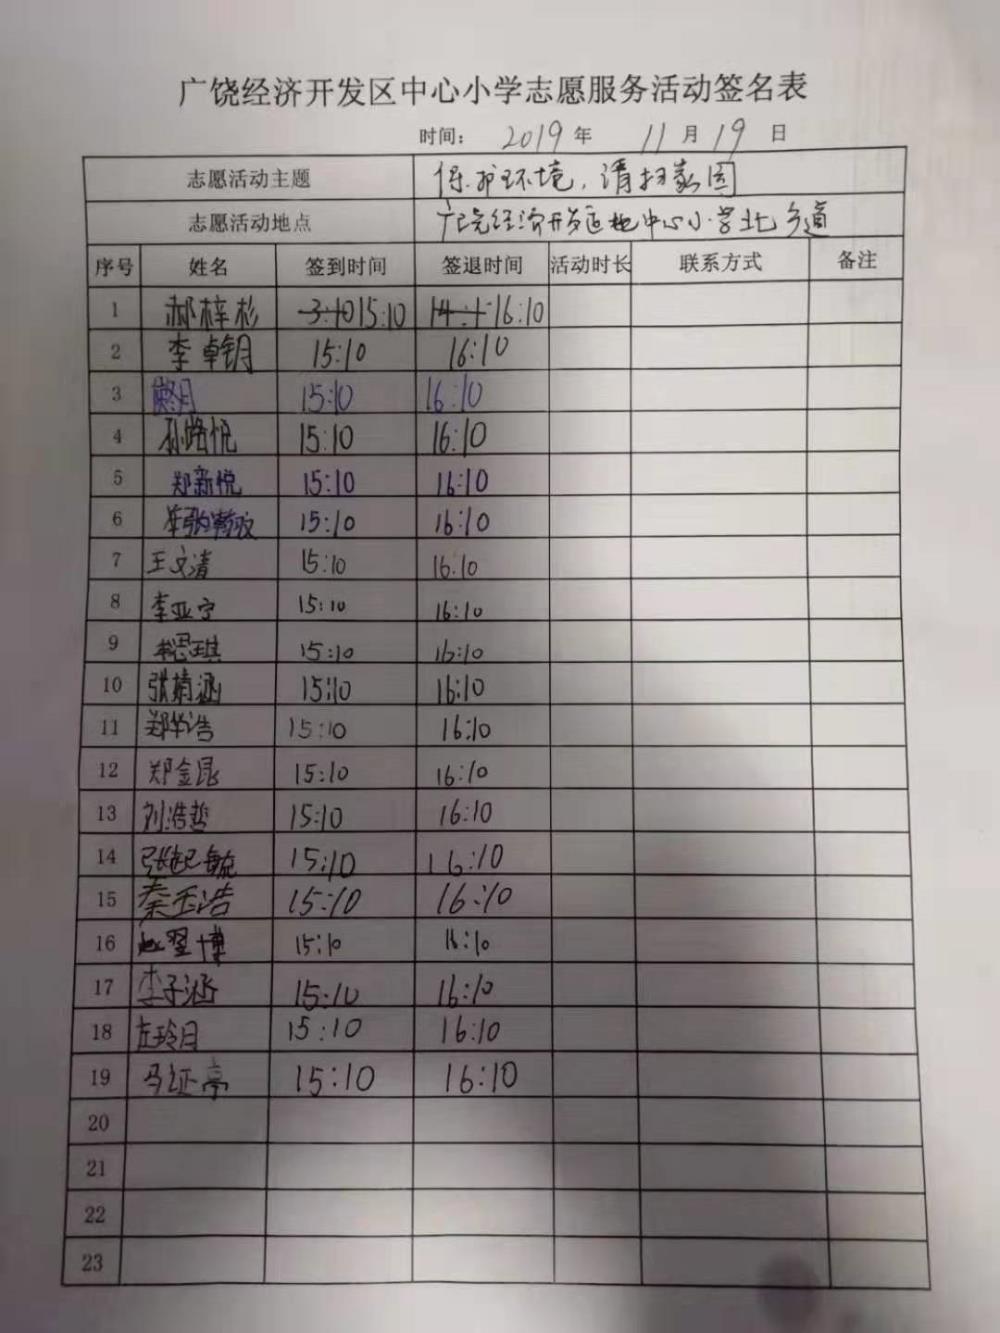 广饶经济开发区中心小学志愿服务活动签名表
时间: 2019年 11月 19日
志愿活动主题 保护环境,清扫家园
志愿活动地点 广饶经济开发区 中心小学北
序号 姓名 签到时间 签退时间 活动时长 联系方式 备注
1 郝梓杉 15:10 16:10
2 李卓钥 15:10 16:10
3 15:10 16:10
4 孙悦 15:10 16:10
5 郑新悦 15:10 16:10
6 15:10 16:10
7 王文清 15:10 16:10
8 李亚宁 15:10 16:10
9 思琪 15:10 16:10
10 张婧涵 15:10 16:10
11 郑浩 15:10 16:10
12 郑金昆 15:10 16:10
13 刘浩哲 15:10 16:10
14 张毓 15:10 16:10
15 秦玉浩 15:10 16:10
16 赵翌博 15:10 16:10
17 李子涵 15:10 16:10
18 左玲月 15:10 16:10
19 马证亮 15:10 16:10
20
21
22
23